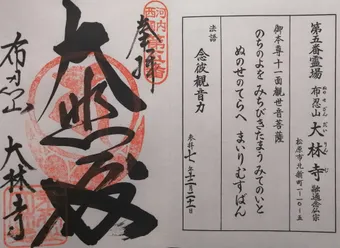 第五番霊場
布忍山 大林寺 融通念仏宗
ぬのせざん だいりんじ
松原市北新町一-一〇-五
御本尊十一面観世音菩薩
のちのよを みちびきたまう みてのいと
ぬのせのてらへ まいりむすばん
法語
念彼観音力
奉拝
大悲殿
布忍山 大林寺